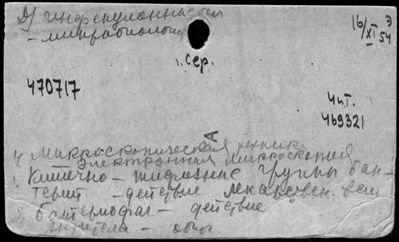 Д) инфекционист
- микробиолог
16/XI 54
Э
1. Сер.
470717
Чит.
469321
А
4 Микроскопическая техника
Электронная микроскопия
1 Кишечно - тифозные группы бак-
терит - действие лекарствен. вещ
2) бактериофаг - действие